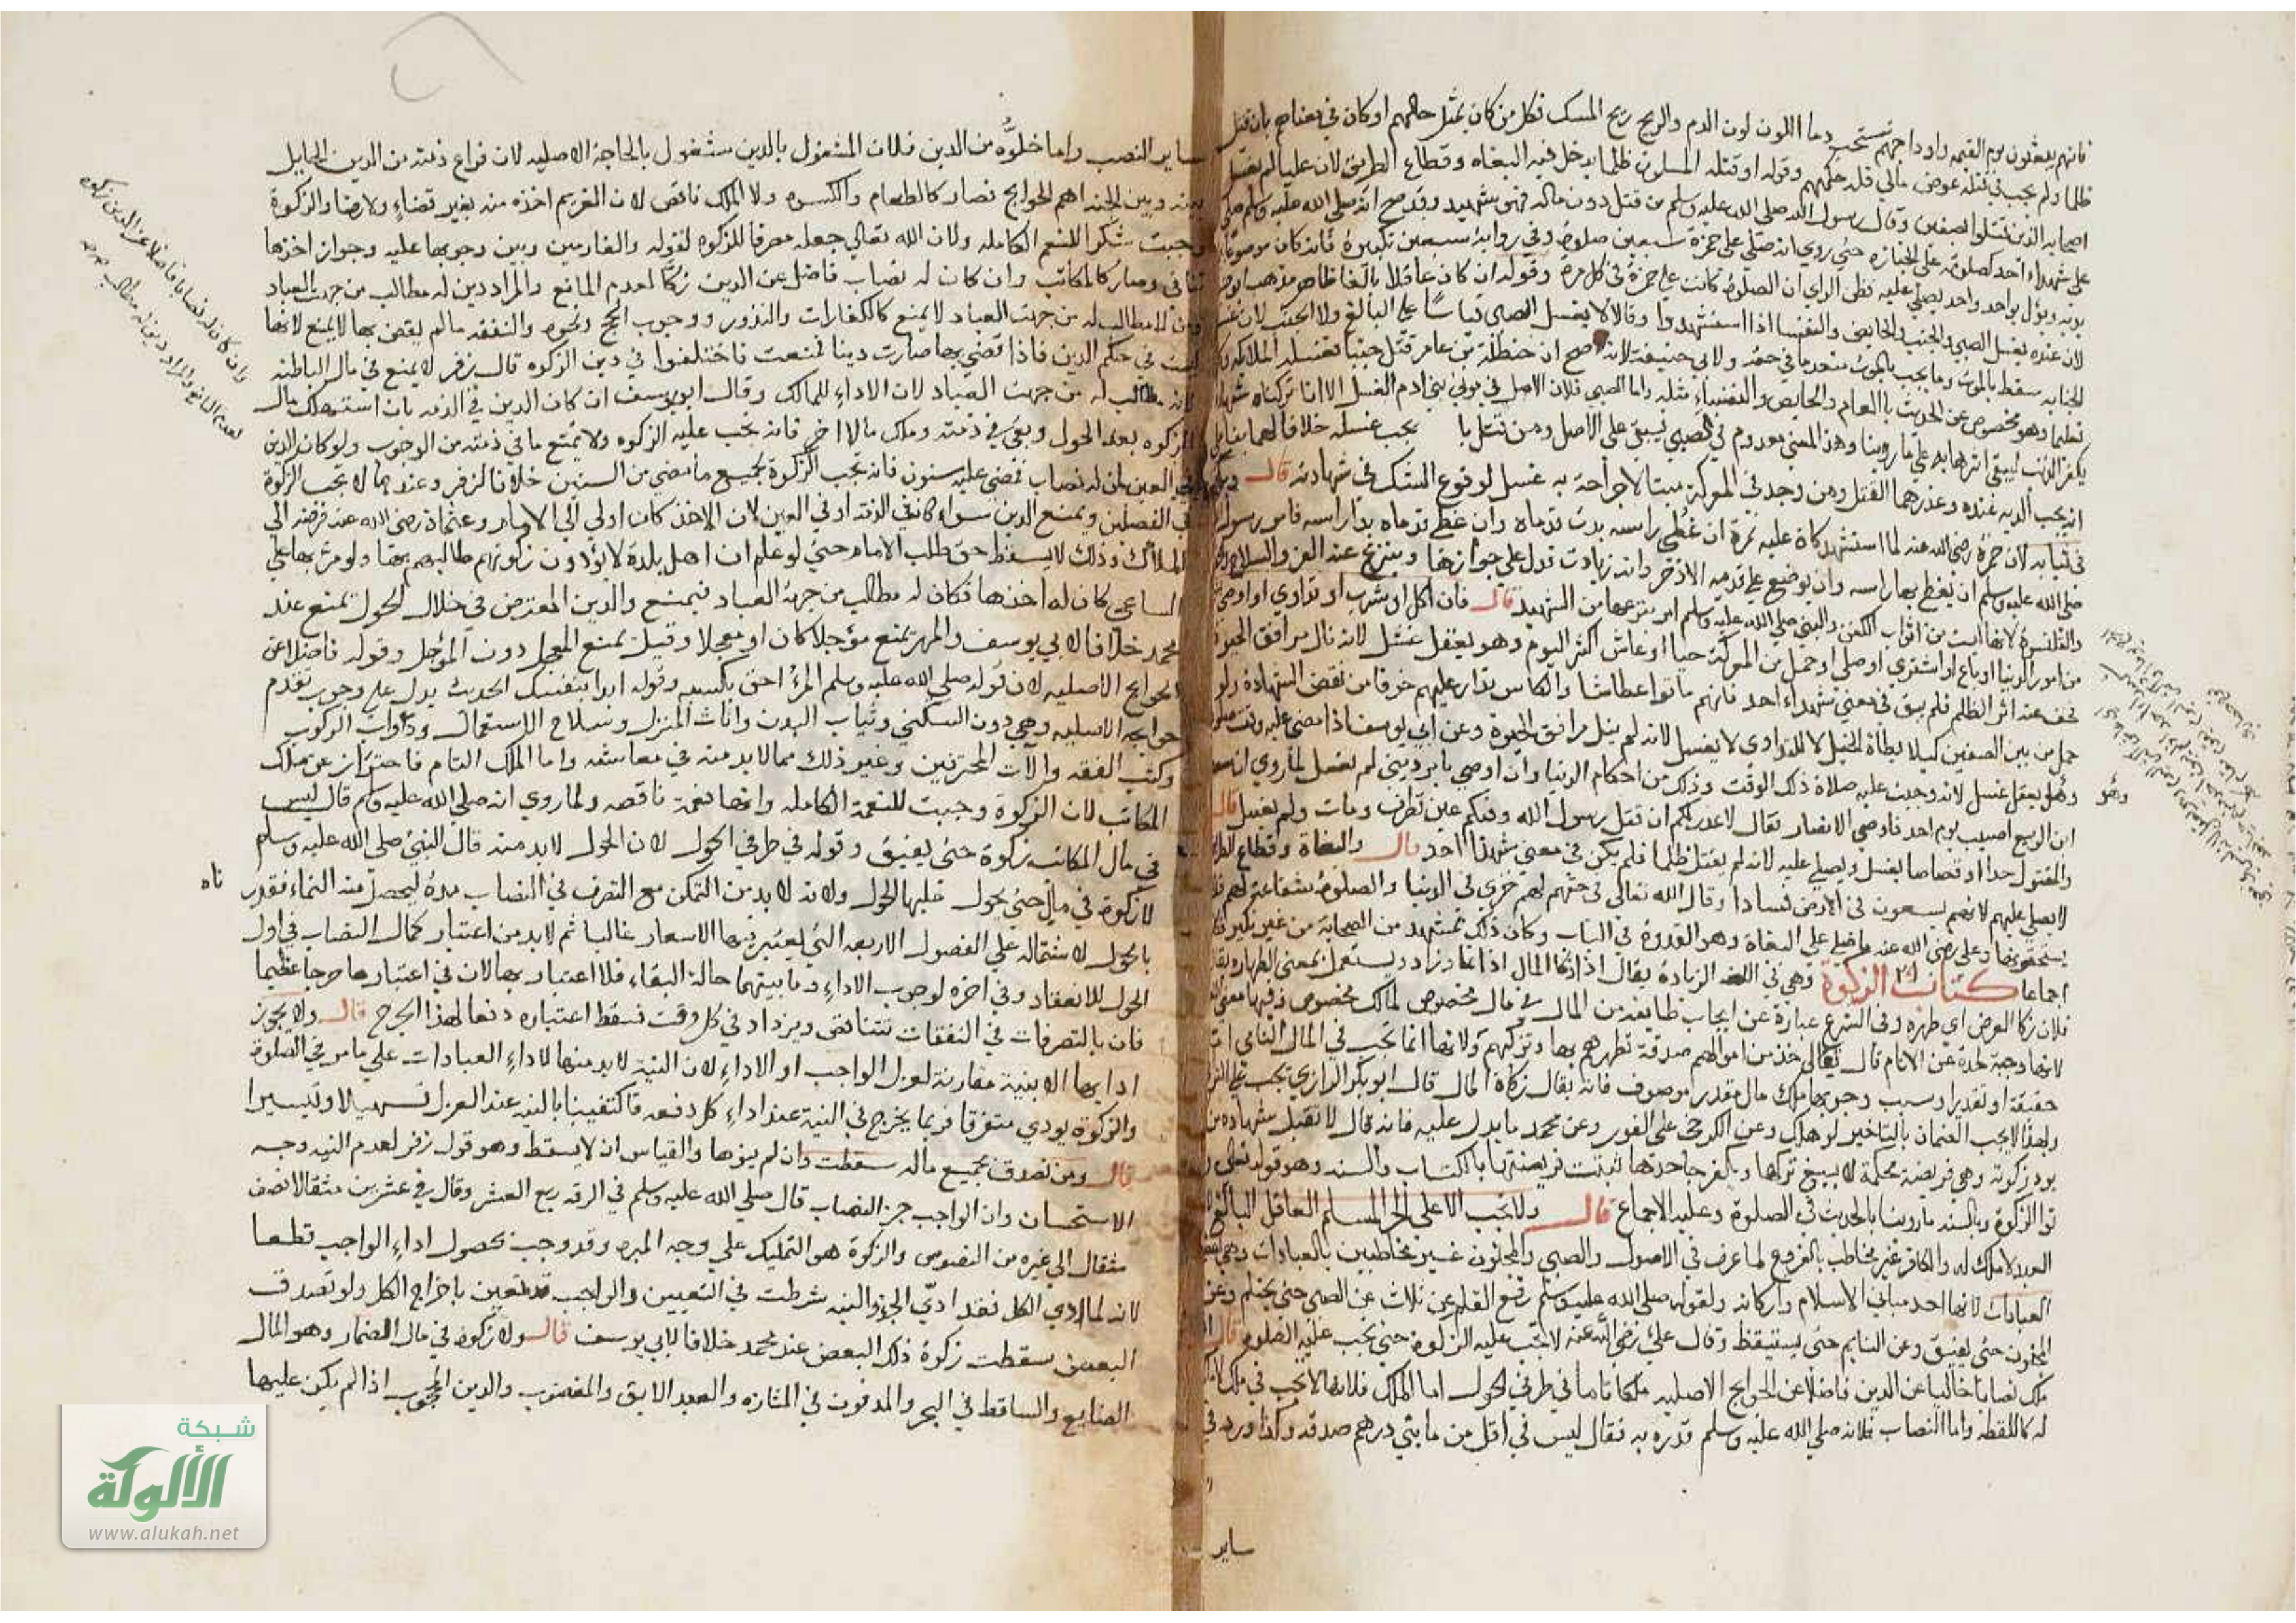 فانهم يبعثون يوم القيمة واوداجهم تشخب دما اللون لون الدم والريح ريح المسك فكل من كان بمثل حالهم او كان في معناهم بان قتل
ظلما ولم يجب في قتله عوض مالي فله حكمهم وقوله او قتله المسلمون ظلما يدخل فيه البغاه وقطاع الطريق لان عليا لم يغسل
اصحابه الذين قتلوا بصفين وقال رسول الله صلى الله عليه وسلم من قتل دون ماله فهو شهيد وقد صح انه صلى الله عليه وسلم صلى
على شهداء احد كصلوته على الجنازة حتى روي انه صلى على حمزة سبعين صلوة وفي رواية سبعين تكبيرة فانه كان موضوعا
يؤتى بواحد واحد يصلى عليه فظن الراوي ان الصلوة كانت على حمزة في كل مرة وقوله ان كان عاقلا بالغا طاهرا مذهب ابي
لان عنده يغسل الصبي والجنب والحايض والنفسا اذا استشهدوا وقالا لا يغسل الصبي قياسا على البالغ ولا الجنب لان غسل
الجنابه سقط بالموت وما يجب بالموت منعدم في حقه ولابي حنيفة انه صح ان حنظلة بن عامر قتل جنبا فغسله الملائكة
تعليما وهو مخصوص عن الحديث العام والحايض والنفساء مثله واما الصبي فلان الاصل في موتى بني ادم الغسل الا انا تركناه
يكفر الذنب ليبقى اثرها به على ما روينا وهذا المعنى معدوم في الصبي فيبقى على الاصل ومن قتل با يجب غسله خلافا لهما بنا على
انه يجب الدية عنده وعندهما القتل ومن وجد في المعركة ميتا لا جراحة به غسل لوقوع الشك في شهادته قال
في ثيابه لان حمزة رضي الله عنه لما استشهد كان عليه نمرة ان غطي راسه بدت قدماه وان غطي قدماه بدا راسه فامر رسول
صلى الله عليه وسلم ان يغطى بها راسه وان يوضع على قدميه الاذخر وانه زيادة تدل على جوازها وينزع عنه الفرو والسلاح
والقلنسوة لانها ليست من اثواب الكفن والنبي صلى الله عليه وسلم امر بنزعها من الشهيد قال فان اكل او شرب او تداوى او اوصى
من امور الدنيا او باع او اشترى او صلى او حمل من المعركة حيا او عاش اكثر اليوم وهو يعقل غسل لانه نال مرافق الحيوة
فخف عنه اثر الظلم فلم يبق في معنى شهداء احد فانهم ماتوا عطاشا والكاس تدار عليهم خوفا من نقص الشهادة ولو
حمل من بين الصفين كيلا يطأه الخيل لا للتداوي لا يغسل لانه لم ينل مرافق الحيوة وعن ابي يوسف اذا مضى عليه وقت صلوة
وهو يعقل غسل لانه وجبت عليه صلاة ذلك الوقت وذلك من احكام الدنيا وان اوصى بامر ديني لم يغسل لما روي ان سعد
ابن الربيع اصيب يوم احد فاوصى الانصار فقال لا عذر لكم ان قتل رسول الله وفيكم عين تطرف ومات ولم يغسل قال
والمقتول حدا او قصاصا يغسل ويصلى عليه لانه لم يقتل ظلما فلم يكن في معنى شهداء احد قال والبغاة وقطاع
لا يصلى عليهم لانهم يسعون في الارض فسادا وقال الله تعالى في حقهم لهم خزي في الدنيا والصلوة شفاعة لهم
يستحقونها وعلي رضي الله عنه ما صلى على البغاة وهو القدوة في الباب وكان ذلك بمشهد من الصحابة من غير نكير
اجماعا كتاب الزكوة وهي في اللغة الزيادة يقال اذا زكا المال اذا نما وزاد ويستعمل بمعنى الطهارة يقال
فلان زكا العرض اي طهره وفي الشرع عبارة عن ايجاب طايفة من المال في مال مخصوص لمالك مخصوص وفيها معنى
لانها وجبت طهرة عن الاثام قال تعالى خذ من اموالهم صدقة تطهرهم بها وتزكيهم ولانها انما تجب في المال النامي اما
حقيقة او تقديرا وسبب وجوبها ملك مال مقدر موصوف فانه يقال زكاة المال قال ابو بكر الرازي تجب على التراخي
ولهذا لا يجب الضمان بالتاخير لو هلك وعن الكرخي على الفور وعن محمد ما يدل عليه فانه قال لا تقبل شهادة من
يود زكوته وهي فريضة محكمة لا يسع تركها ويكفر جاحدها ثبتت فرضيتها بالكتاب والسنة وهو قوله تعالى
توا الزكوة وبالسنة ما روينا بالحديث في الصلوة وعليه الاجماع قال ولا تجب الا على الحر المسلم العاقل البالغ
العبد لا ملك له والكافر غير مخاطب بالفروع لما عرف في الاصول والصبي والمجنون غير مخاطبين بالعبادات وهي
العبادات لانها احد مباني الاسلام واركانه ولقوله صلى الله عليه وسلم رفع القلم عن ثلاث عن الصبي حتى يحتلم وعن
المجنون حتى يفيق وعن النايم حتى يستيقظ وقال علي رضي الله عنه لا تجب عليه الزكوة حتى تجب عليه الصلوة قال
ملك نصابا خاليا عن الدين فاضلا عن الحوايج الاصلية ملكا تاما في طرفي الحول اما الملك فلانها لا تجب في
له كاللقطه واما النصاب فلانه صلى الله عليه وسلم قدره به فقال ليس في اقل من مايتي درهم صدقة وكذا ورد في
ساير
وهو
ساير النصب واما خلوه من الدين فلان المشغول بالدين مشغول بالحاجة الاصليه لان فراغ ذمته من الدين الحايل
بينه وبين الجنة اهم الحوايج فصار كالطعام والكسوه ولان الملك ناقص لان الغريم اخذه منه بغير قضاء ولا رضا والزكوة
وجبت شكرا للنعم الكاملة ولان الله تعالى جعله مصرفا للزكوة لقوله والغارمين وبين وجوبها عليه وجواز اخذها
تنافى وصار كالمكاتب وان كان له نصاب فاضل عن الدين زكا لعدم المانع والمراد دين له مطالب من جهة العباد
وما لا مطالب له من جهة العباد لا يمنع كالكفارات والنذور ووجوب الحج ونحوه والنفقه ما لم يقض بها لا يمنع لانها
ليست في حكم الدين فاذا قضي بها صارت دينا فمنعت فاختلفوا في دين الزكوة قال زفر لا يمنع في مال الباطنه
لانه لا مطالب له من جهة العباد لان الاداء للمالك وقال ابو يوسف ان كان الدين في الذمه بان استهلك مال
الزكوة بعد الحول وبقي في ذمته وملك مالا اخر فانه تجب عليه الزكوة ولا يمنع ما في ذمته من الوجوب ولو كان الدين
في العين بان له نصاب فمضى عليه سنون فانه تجب الزكوة بجميع ما مضى من السنين خلافا لزفر وعندهما لا تجب الزكوة
في الفصلين ويمنع الدين سواء كان في الذمة او في العين لان الاخذ كان اولى الى الامام وعثمان رضي الله عنه فوضه الى
الملاك وذلك لا يسقط حق طلب الامام حتى لو علم ان اهل بلدة لا يؤدون زكوتهم طالبهم بها ولو مر بها على
الساعي كان له اخذها فكان له مطالب من جهة العباد فيمنع والدين المعترض في خلال الحول يمنع عند
محمد خلافا لابي يوسف والمهر يمنع مؤجلا كان او معجلا وقيل يمنع المعجل دون المؤجل وقوله فاضلا عن
الحوايج الاصليه لان قوله صلى الله عليه وسلم المرء احق بكسبه وقوله ابدا بنفسك الحديث يدل على وجوب تقدم
حوايجه الاصليه وهي دور السكنى وثياب البدن واثاث المنزل وسلاح الاستعمال ودواب الركوب
وكتب الفقه والات المحترفين وغير ذلك مما لا بد منه في معاشه واما الملك التام فاحتراز عن ملك
المكاتب لان الزكوة وجبت للنعمة الكاملة وانها نعمة ناقصه ولما روي انه صلى الله عليه وسلم قال ليس
في مال المكاتب زكوة حتى يعتق وقوله في طرفي الحول لان الحول لا بد منه قال النبي صلى الله عليه وسلم
لا زكوة في مال حتى يحول عليها الحول ولانه لا بد من التمكن مع التصرف في النصاب مدة ليحصل منه النماء فقدر
ناه
بالحول لاشتماله على الفصول الاربعه التي يعتبر فيها الاسعار غالبا ثم لا بد من اعتبار كمال النصاب في اول
الحول للانعقاد وفي اخره لوجوب الاداء وما بينهما حالة البقاء فلا اعتبار بها لان في اعتبارها حرجا عظيما
فان بالتصرفات في النفقات تتناقص ويزداد في كل وقت فسقط اعتباره دفعا لهذا الحرج قال ولا يجوز
اداءها الا بنية مقارنة لعزل الواجب او الاداء لان النية لا بد منها لاداء العبادات على ما مر في الصلوة
والزكوة يودي متفرقا فربما يخرج في النية عند اداء كل دفعة فاكتفينا بالنية عند العزل تسهيلا وتيسيرا
قال ومن تصدق بجميع ماله سقطت وان لم ينوها والقياس ان لا يسقط وهو قول زفر لعدم النية وجه
الاستحسان وان الواجب جزء النصاب قال صلى الله عليه وسلم في الرقه ربع العشر وقال في عشرين مثقالا نصف
مثقال الى غيره من النصوص والزكوة هو التمليك على وجه المبره وقد وجب بحصول اداء الواجب قطعا
لانه لما ادي الكل فقد ادى الجزء والنيه شرطت في التعيين والواجب قد تعين باخراج الكل ولو تصدق
البعض سقطت زكوة ذلك البعض عند محمد خلافا لابي يوسف قال ولا زكوة في مال الضمار وهو المال
الضايع والساقط في البحر والمدفون في المفازه والعبد الابق والمغصوب والدين المجحوب اذا لم يكن عليها
وان كان له نصابا فاضلا عن الدين زكوه
لعدم المانع والمراد دين له مطالب من جهة
شبكة
الألوكة
www.alukah.net